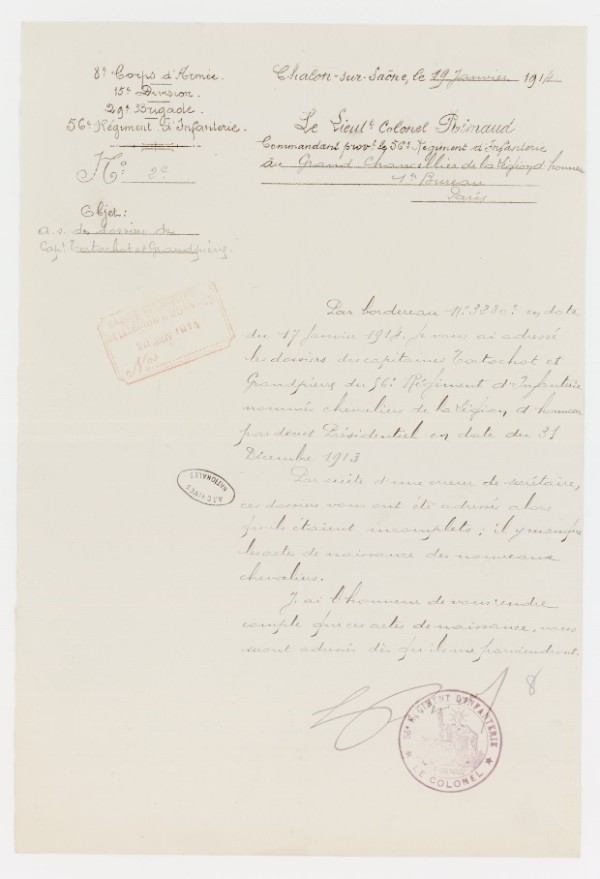 8e Corps d'Armée.
15e Division.
29e Brigade.
56e Régiment d'Infanterie.
No: 2c
Objet:
a. s. des dossiers des
Capes Tatochot et Grandpierre.
Chalon-sur-Saône, le 19 Janvier 1914
Le Lieutt Colonel Rimaud
Commandant provt le 56e Régiment d'Infanterie
au Grand Chancelier de la Légion d'honneur
1er Bureau
Paris
20 JANV 1914
Nos
Par bordereau No 3280c en date
du 17 Janvier 1914, je vous ai adressé
les dossiers des capitaines Tatochot et
Grandpierre du 56e Régiment d'Infanterie
nommés chevaliers de la Légion d'honneur
par décret Présidentiel en date du 31
Décembre 1913
ARCHIVES
NATIONALES
Par suite d'une erreur de secrétaire,
ces dossiers vous ont été adressés alors
qu'ils étaient incomplets; il y manque
les actes de naissance des nouveaux
chevaliers.
J'ai l'honneur de vous rendre
compte que ces actes de naissance, vous
seront adressés dès qu'ils me parviendront.
8
56e REGIMENT D'INFANTERIE
LE COLONEL